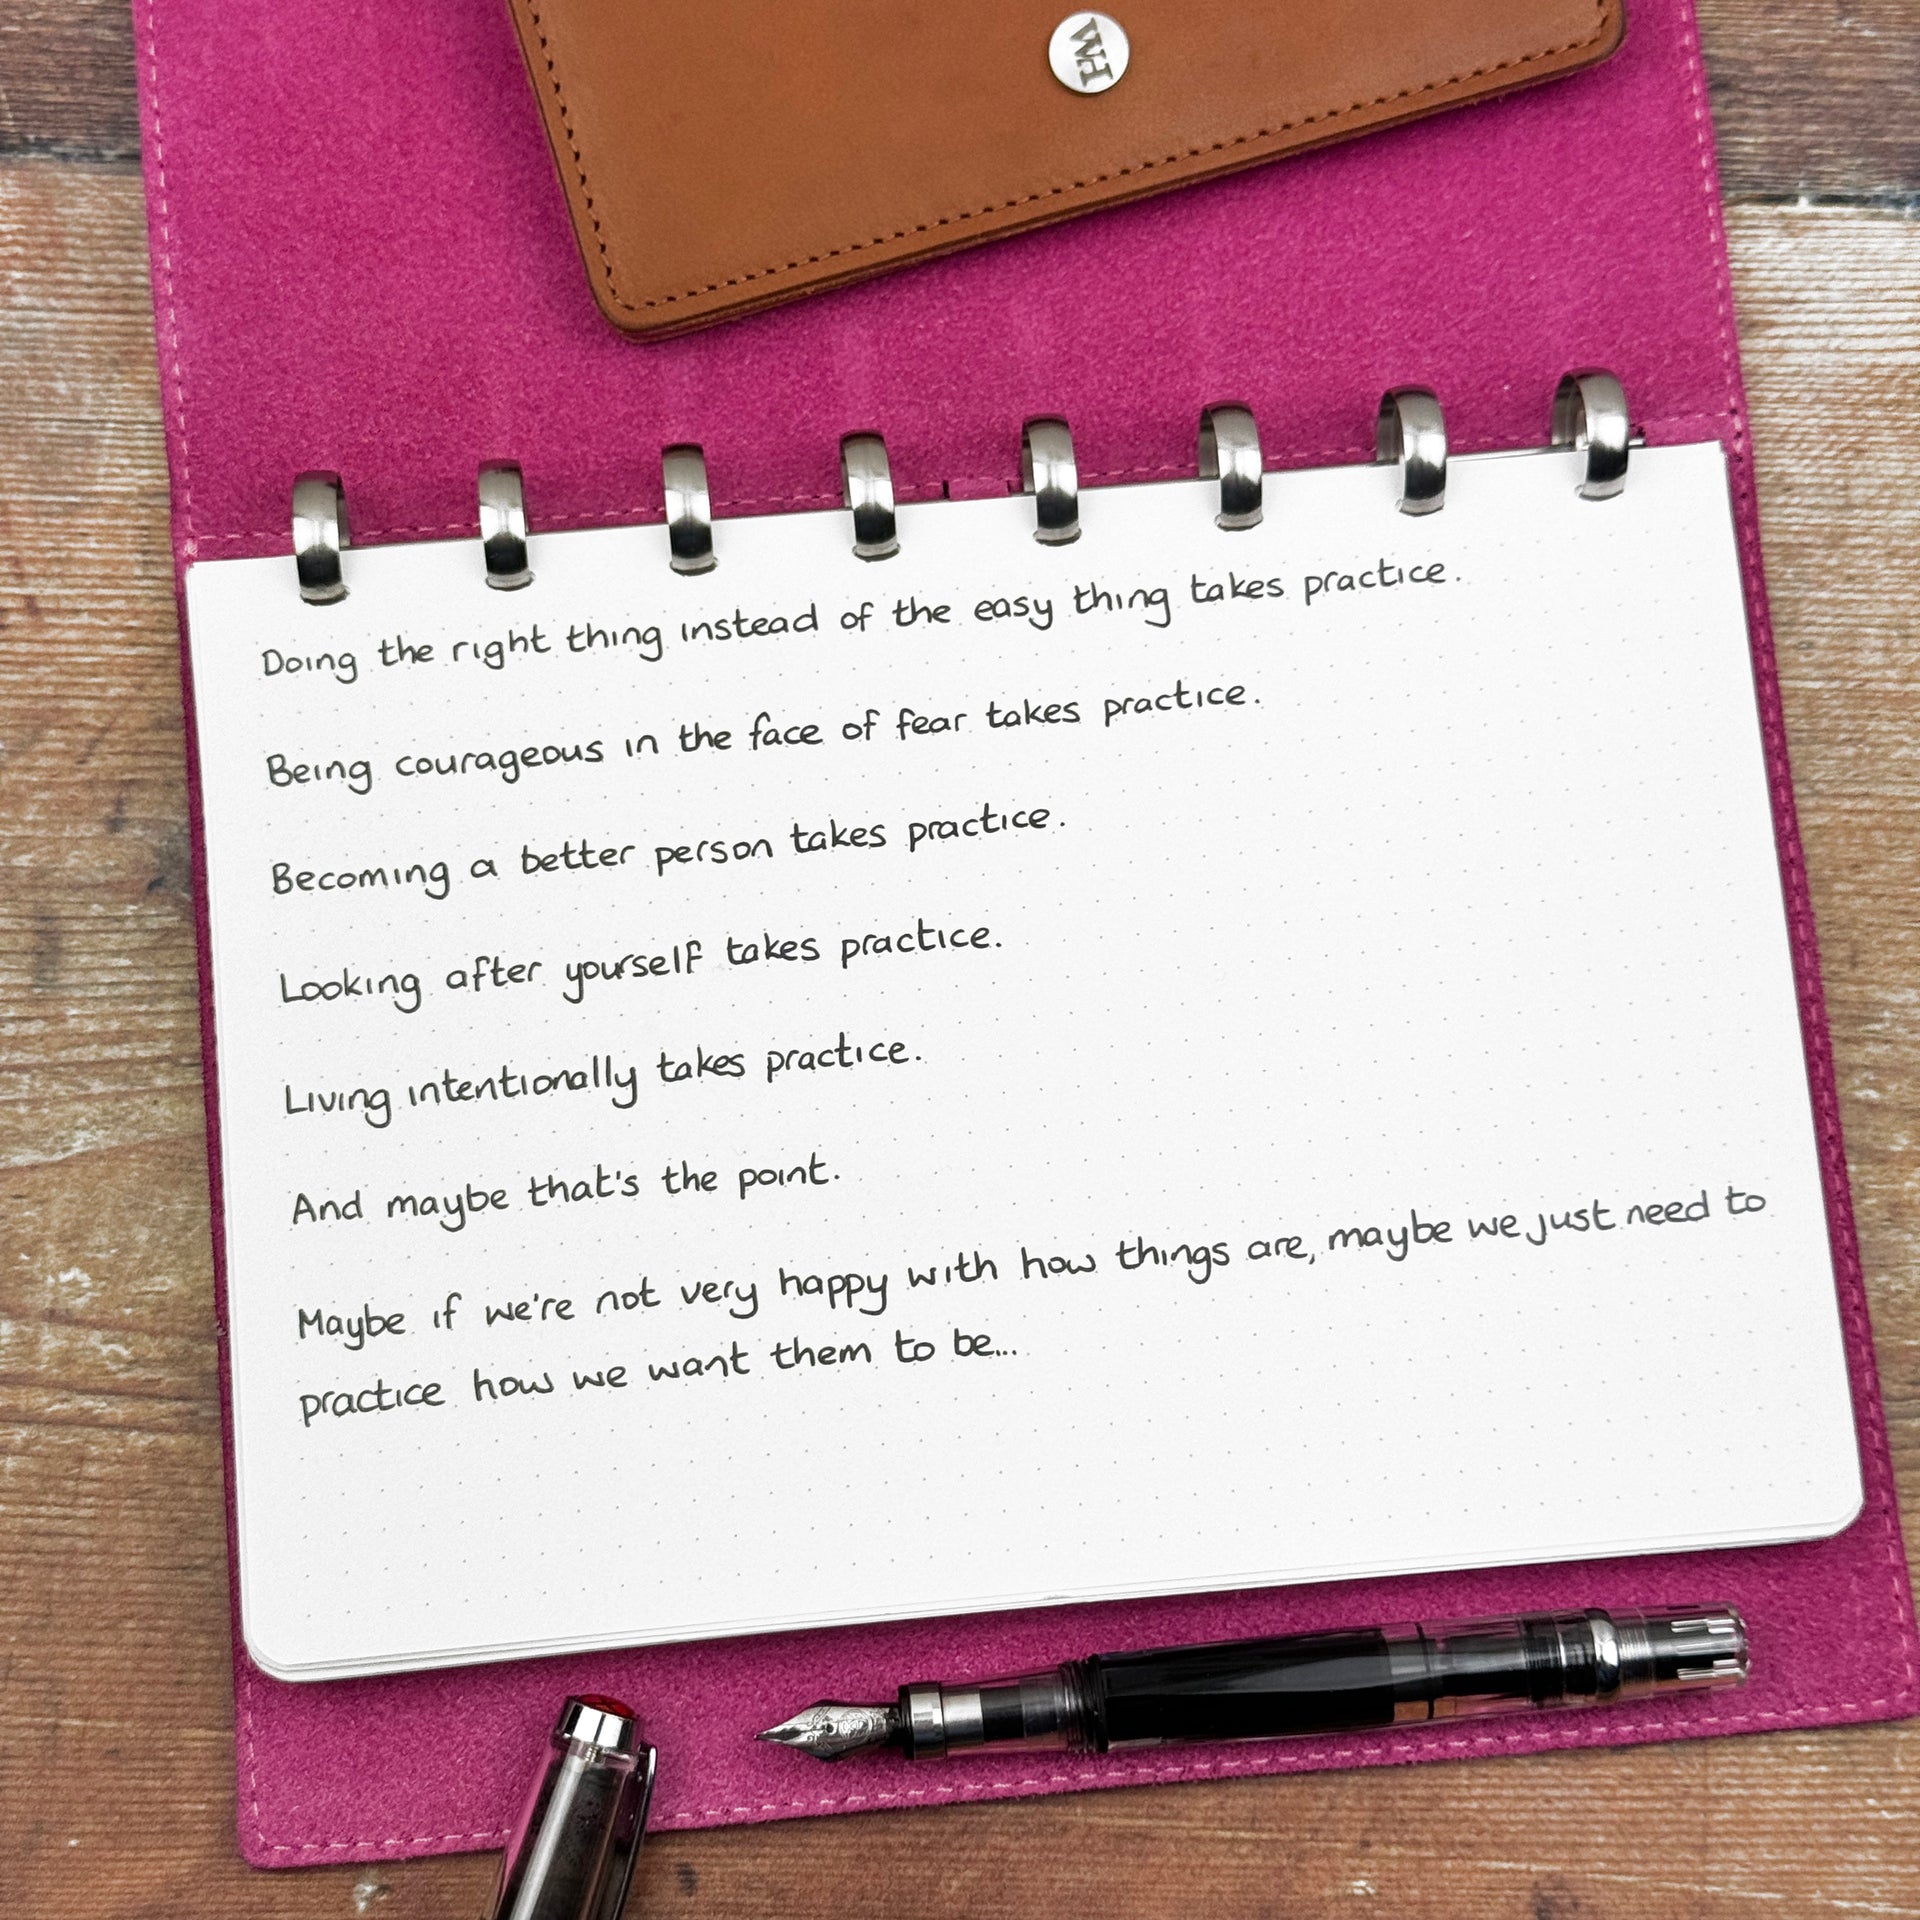 WH
Doing the right thing instead of the easy thing takes practice.
Being courageous in the face of fear takes practice.
Becoming a better person takes practice.
Looking after yourself takes practice.
Living intentionally takes practice.
And maybe that's the point.
Maybe if we're not very happy with how things are, maybe we just need to
practice how we want them to be...